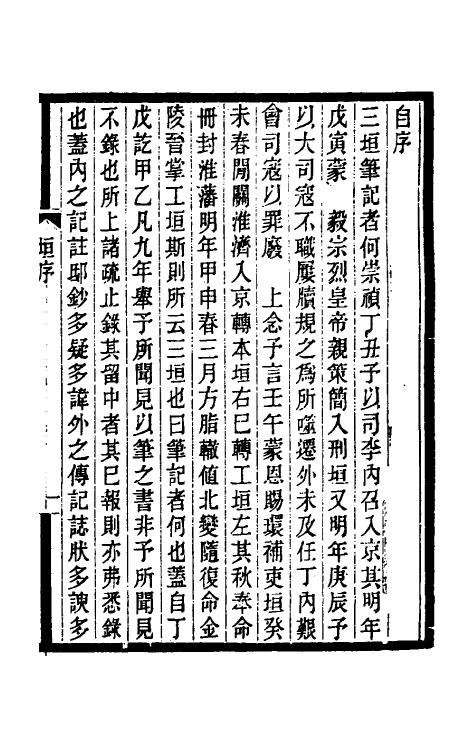 自序
三垣筆記者何崇禎丁丑予以司李內召入京其明年
戊寅蒙　毅宗烈皇帝親策簡入刑垣又明年庚辰予
以大司寇不職屢牘規之爲所噬遷外未及任丁內艱
會司寇以罪廢　上念予言壬午蒙恩賜環補吏垣癸
未春間關淮濟入京轉本垣右巳轉工垣左其秋奉命
冊封淮藩明年甲申春三月方脂轍値北變隨復命金
陵晉掌工垣斯則所云三垣也曰筆記者何也蓋自丁
戊訖甲乙凡九年舉予所聞見以筆之書非予所聞見
不錄也所上諸疏止錄其留中者其巳報則亦弗悉錄
也蓋內之記註邸鈔多疑多諱外之傳記誌狀多諛多
垣序